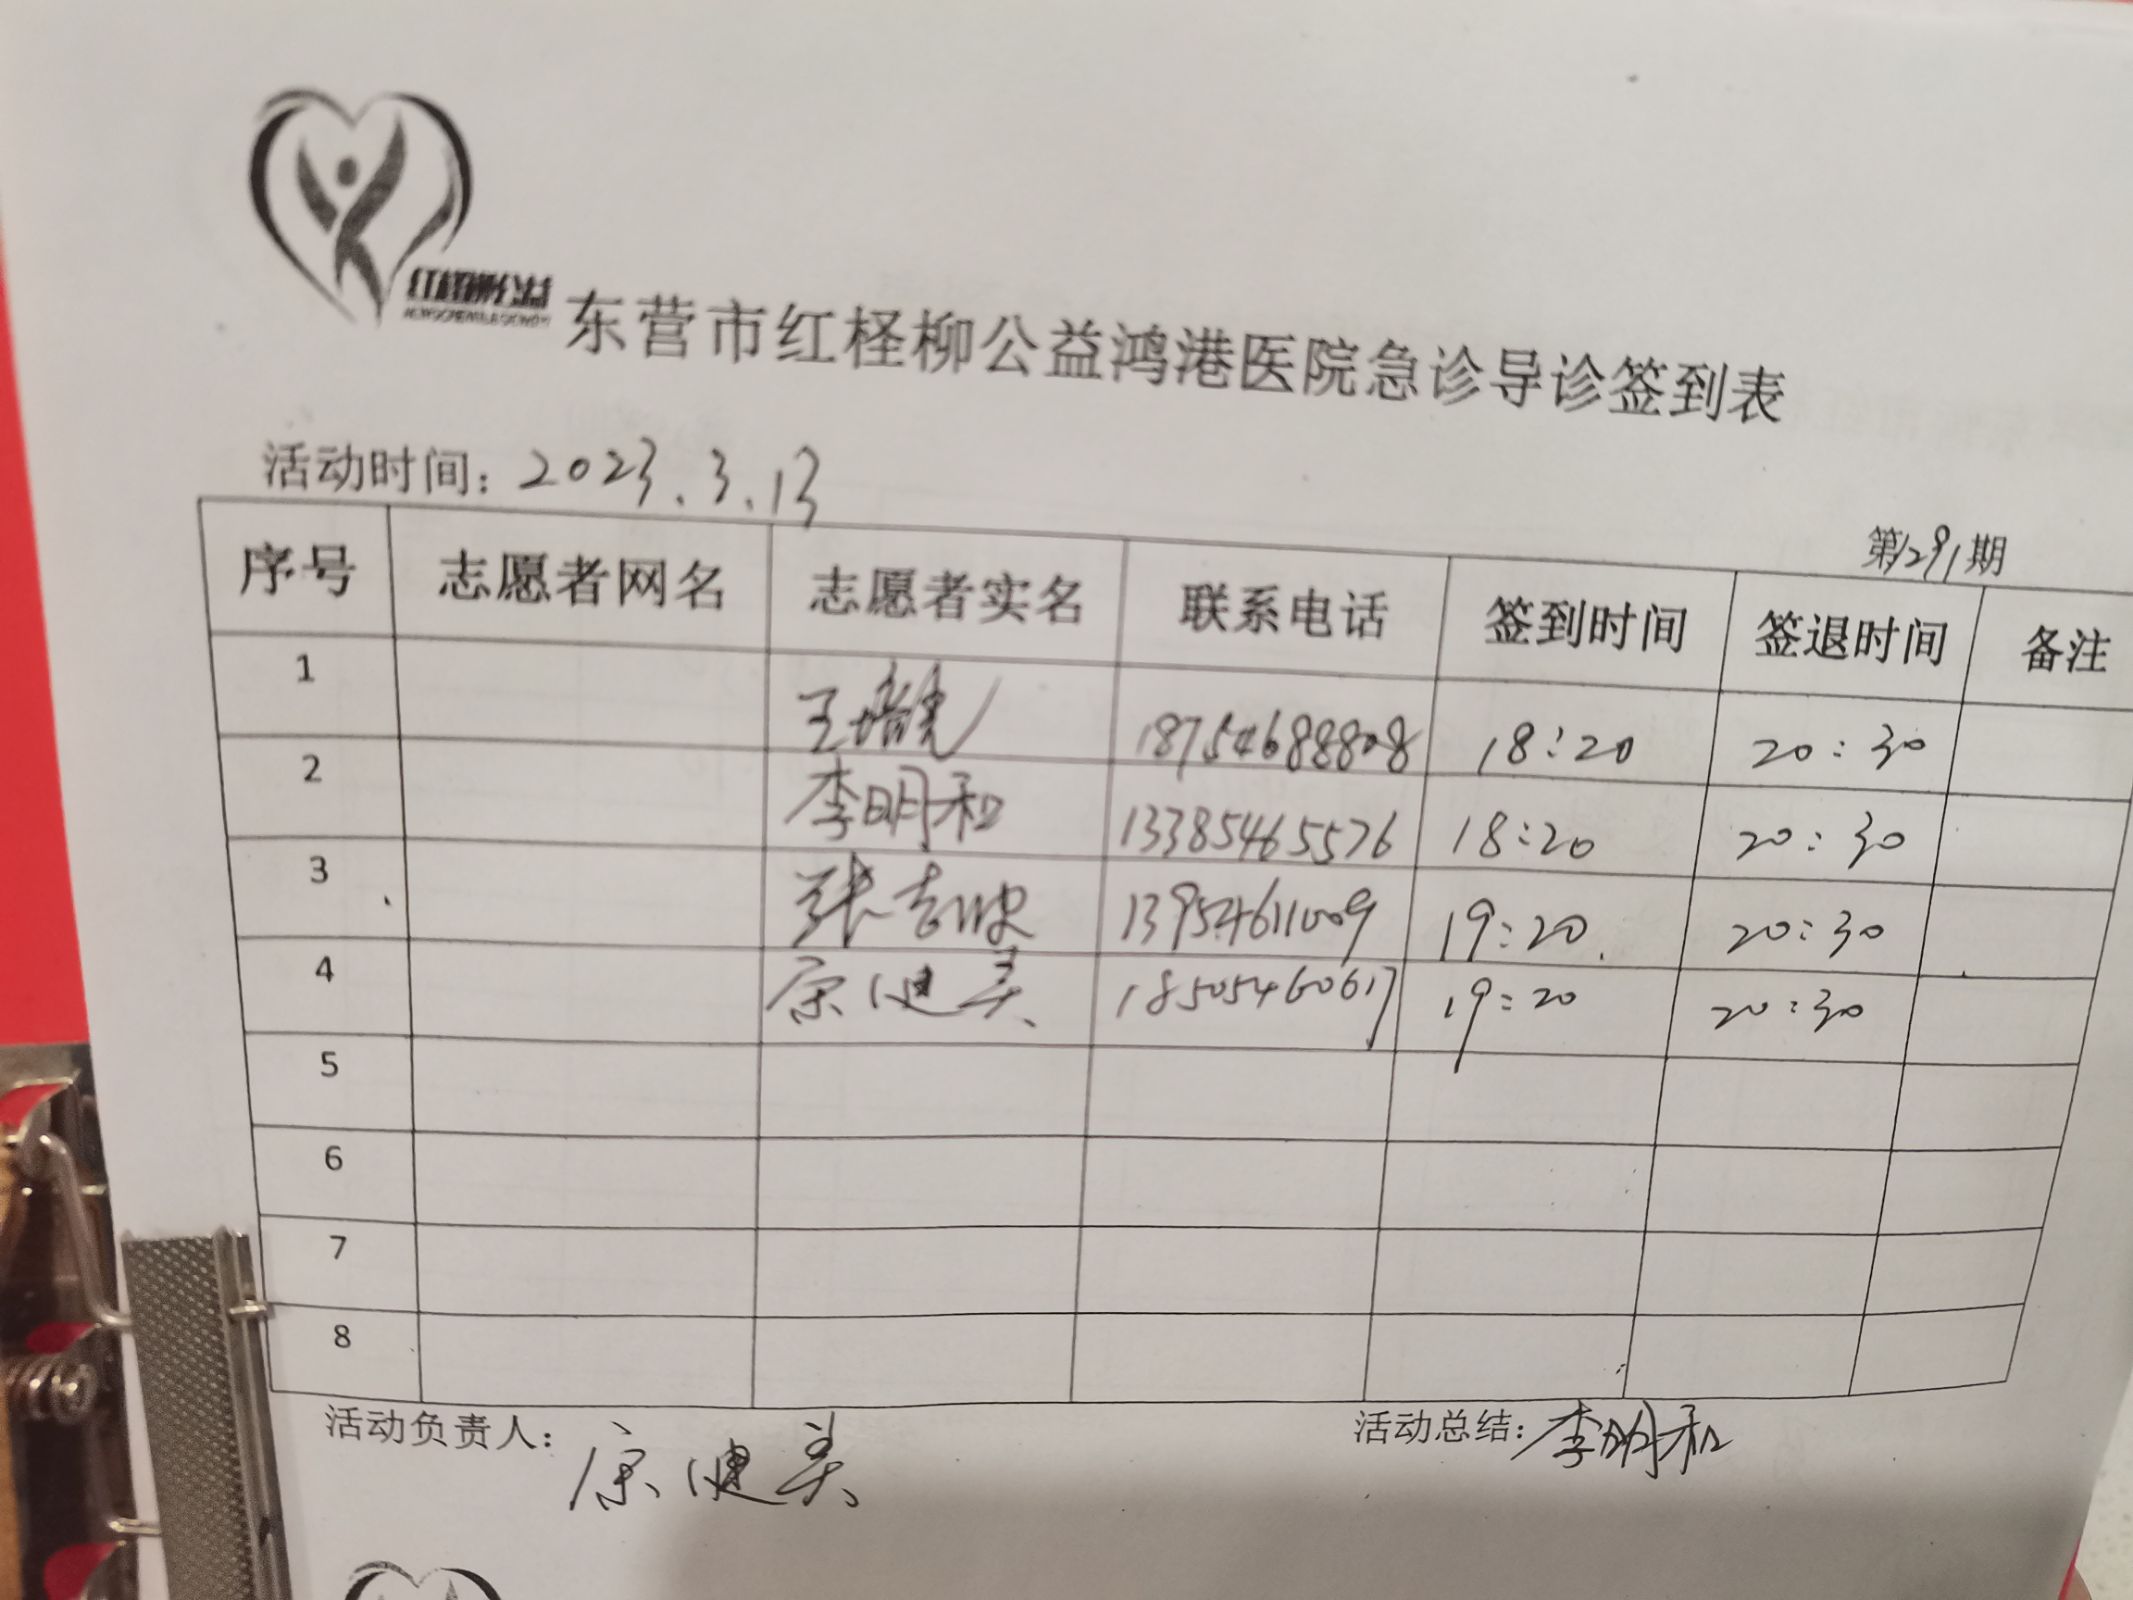 红柽柳公益
东营市红柽柳公益鸿港医院急诊导诊签到表
活动时间：2023.3.13
第1291期
序号 志愿者网名 志愿者实名 联系电话 签到时间 签退时间 备注
1 王 18754688808 18:20 20:30
2 李明和 13385465576 18:20 20:30
3 张志 13954611009 19:20 20:30
4 康健美 18505460617 19:20 20:30
5
6
7
8
活动负责人：康健美
活动总结：李明和